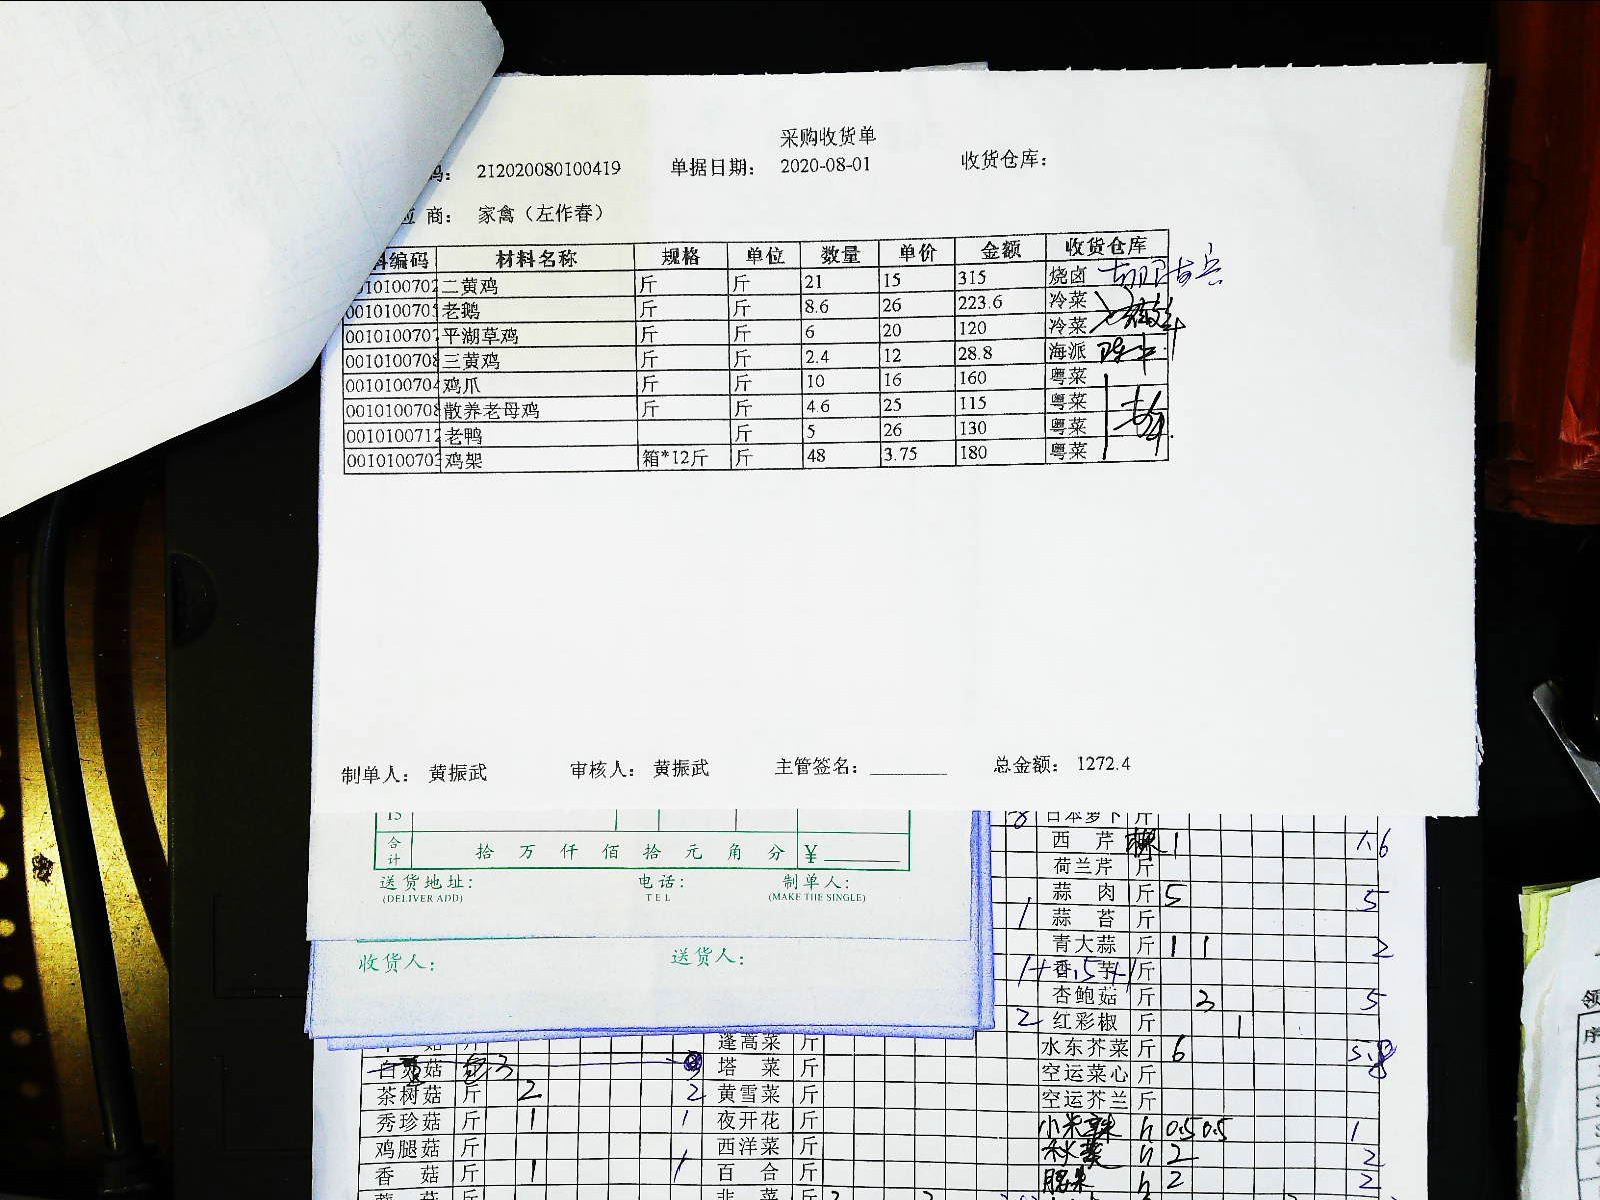 采购收货单
码： 212020080100419 单据日期： 2020-08-01 收货仓库：
应 商： 家禽（左作春）
料编码 材料名称 规格 单位 数量 单价 金额 收货仓库
010100702 二黄鸡 斤 斤 21 15 315 烧卤
001010070 老鹅 斤 斤 8.6 26 223.6 冷菜
001010070 平湖草鸡 斤 斤 6 20 120 冷菜
0010100708 三黄鸡 斤 斤 2.4 12 28.8 海派
0010100704 鸡爪 斤 斤 10 16 160 粤菜
0010100708 散养老母鸡 斤 斤 4.6 25 115 粤菜
0010100712 老鸭 斤 5 26 130 粤菜
0010100703 鸡架 箱*12斤 斤 48 3.75 180 粤菜
制单人： 黄振武 审核人： 黄振武 主管签名：________ 总金额： 1272.4
15
合计 拾 万 仟 佰 拾 元 角 分 ¥
送货地址： 电话： 制单人：
(DELIVER ADD) TEL (MAKE THE SINGLE)
收货人： 送货人：
日本萝卜 斤
西 芹 1 1.6
荷兰芹 斤
蒜 肉 斤 5 5
1 蒜 苔 斤
青大蒜 斤 1 1 2
香 芋 斤
杏鲍菇 斤 3 5
2 红彩椒 斤 1
水东芥菜 斤 6
空运菜心 斤
空运芥兰 斤
小米辣 h 0.5 0.5 1
秋葵 h 2 2
腰果 h 2 2
蓬蒿菜 斤
塔 菜 斤
茶树菇 斤 2 2 黄雪菜 斤
秀珍菇 斤 1 1 夜开花 斤
鸡腿菇 斤 西洋菜 斤
香 菇 斤 1 1 百 合 斤
韭 菜 斤
领
序